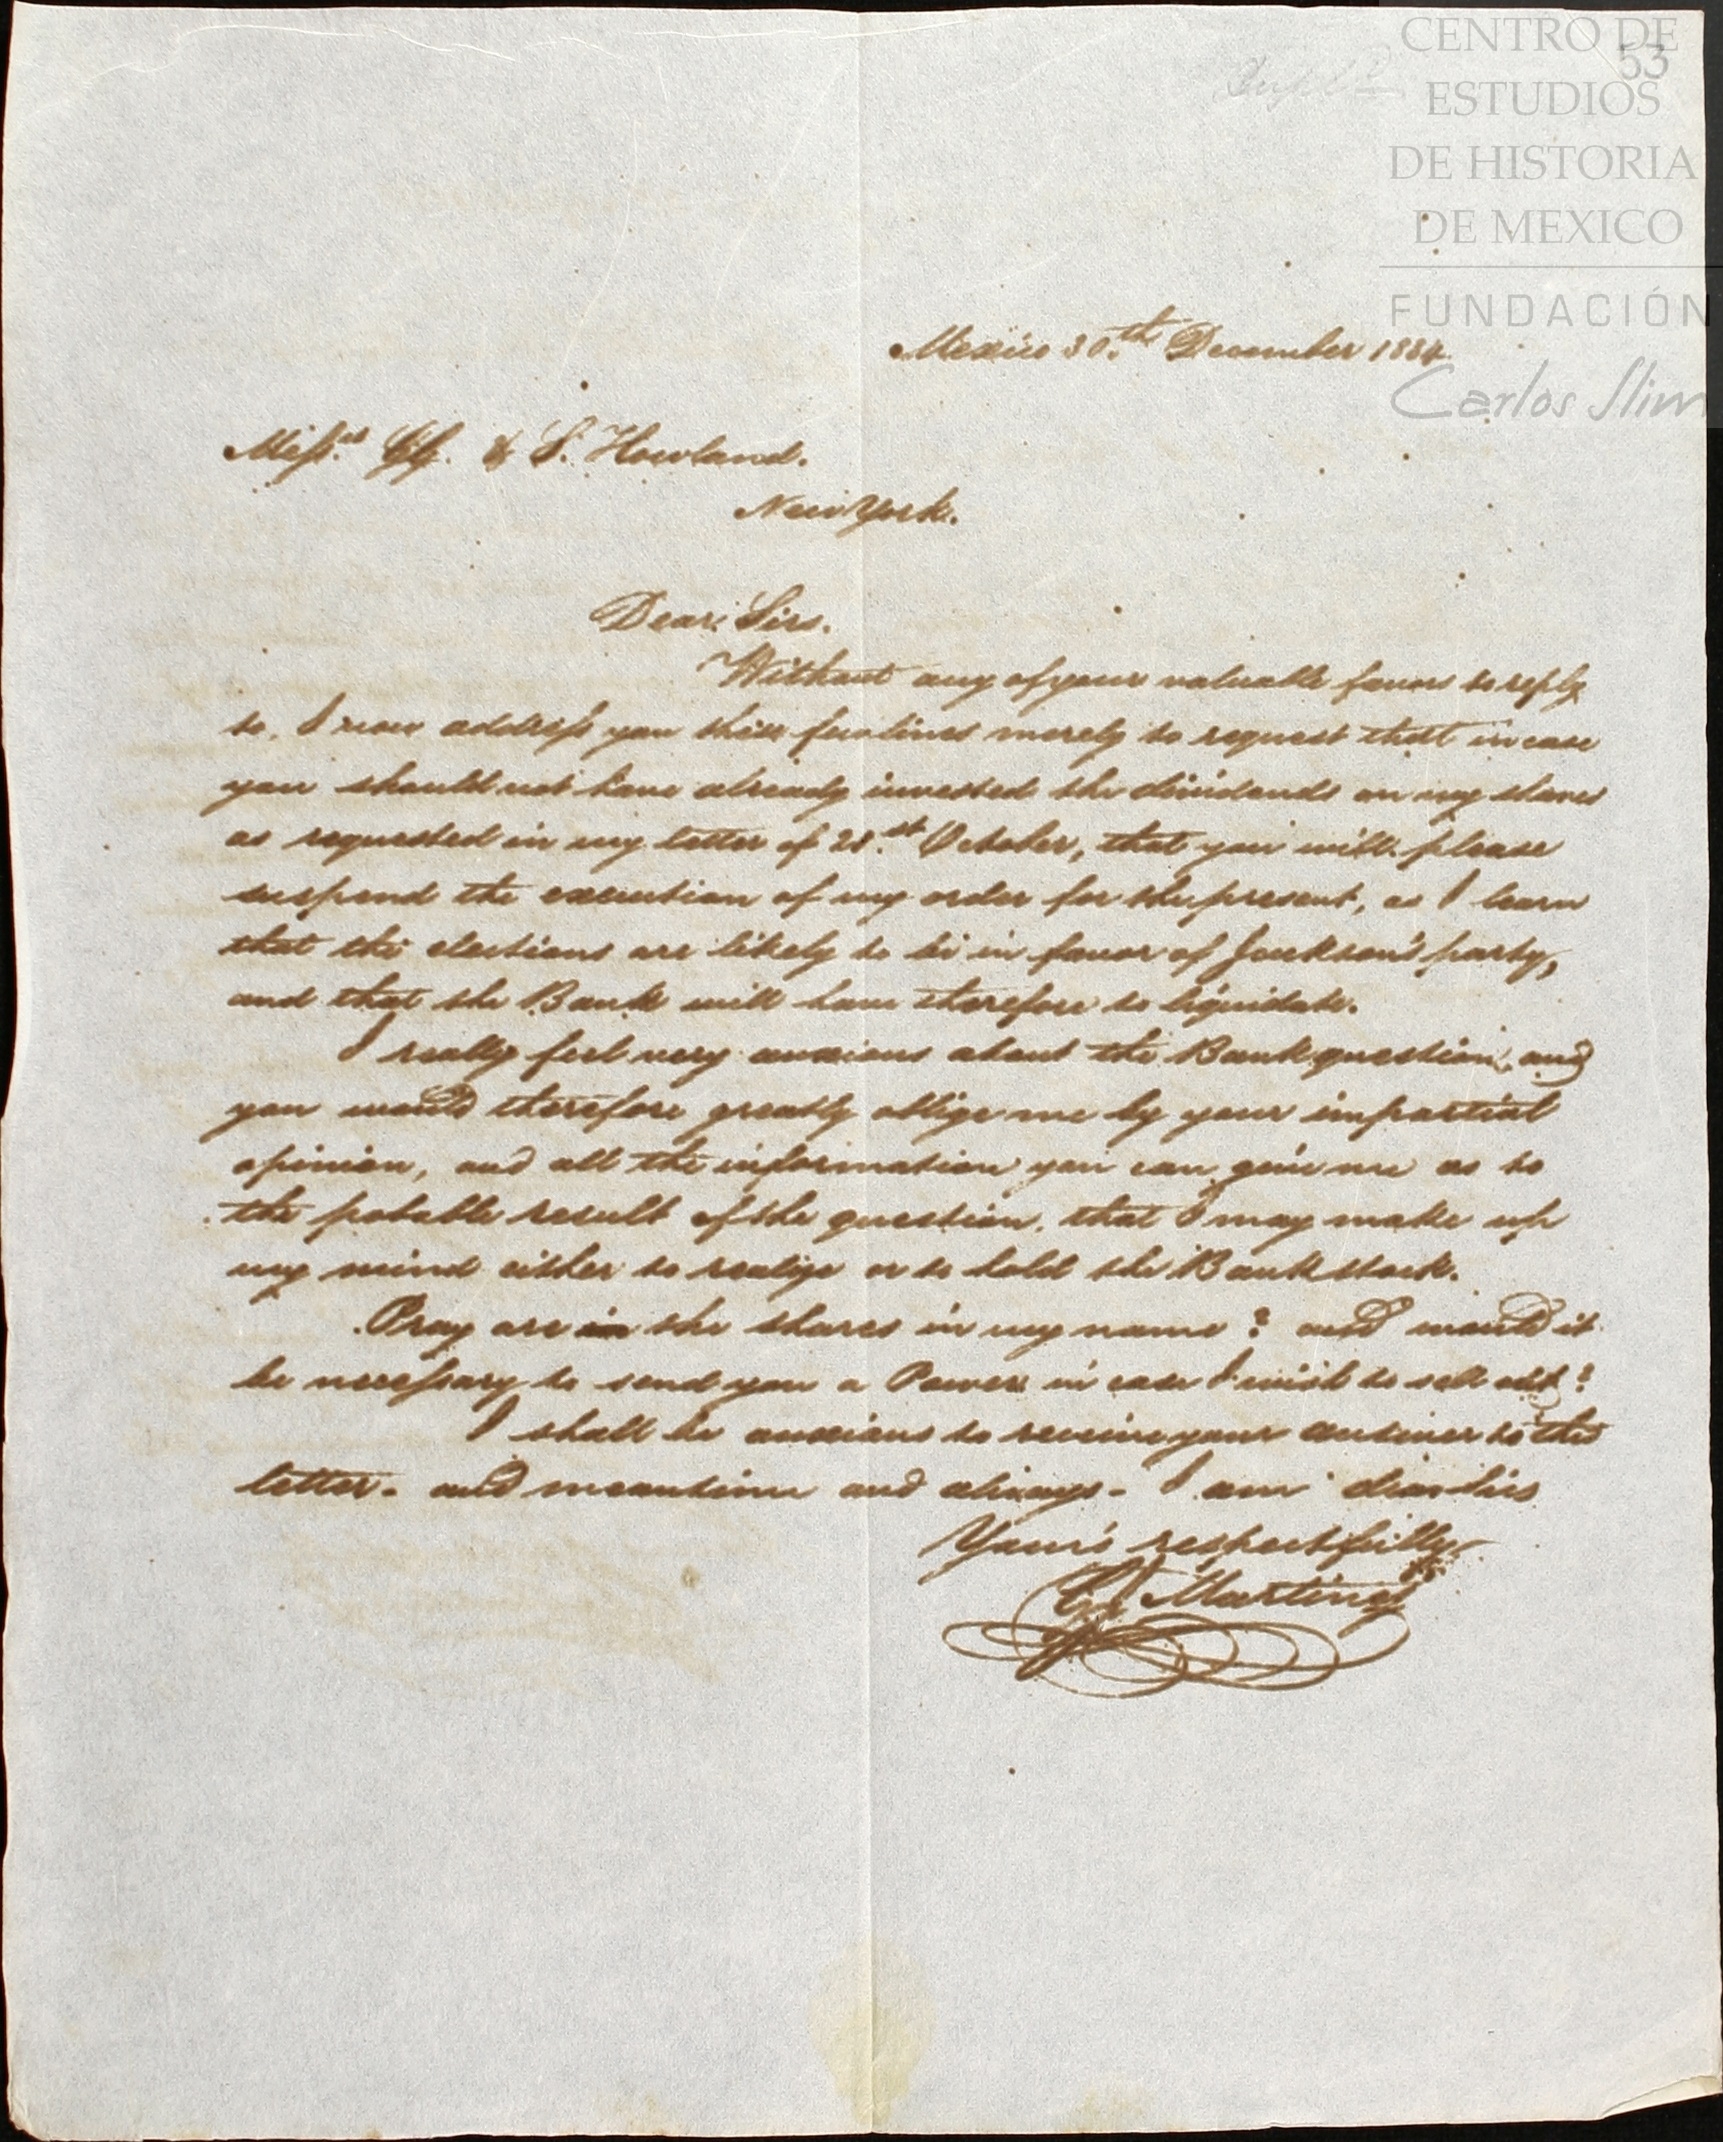 CENTRO DE
53
ESTUDIOS
DE HISTORIA
DE MEXICO
FUNDACIÓN
Carlos Slim
Mexico 30.th December 1834.
Mess.rs G. G. & S. Howland.
New York.
Dear Sirs.
Without any of your valuable favors to reply
to, I now address you this few lines merely to request that in case
you should not have already invested the dividends on my shares
as requested in my letter of 21.st October, that you will please
suspend the execution of my order for the present, as I learn
that the elections are likely to be in favor of Jackson's party,
and that the Bank will have therefore to liquidate.
I really feel very anxious about the Bank question, and
you would therefore greatly oblige me by your impartial
opinion, and all the information you can give me as to
the probable result of the question, that I may make up
my mind either to realize or to hold the Bank stock.
Pray are in the shares in my name? and would it
be necessary to send you a Power in case I wish to sell out?
I shall be anxious to receive your answer to this
letter - and meantime and always - I am dear Sirs
Yours respectfully
Martinez